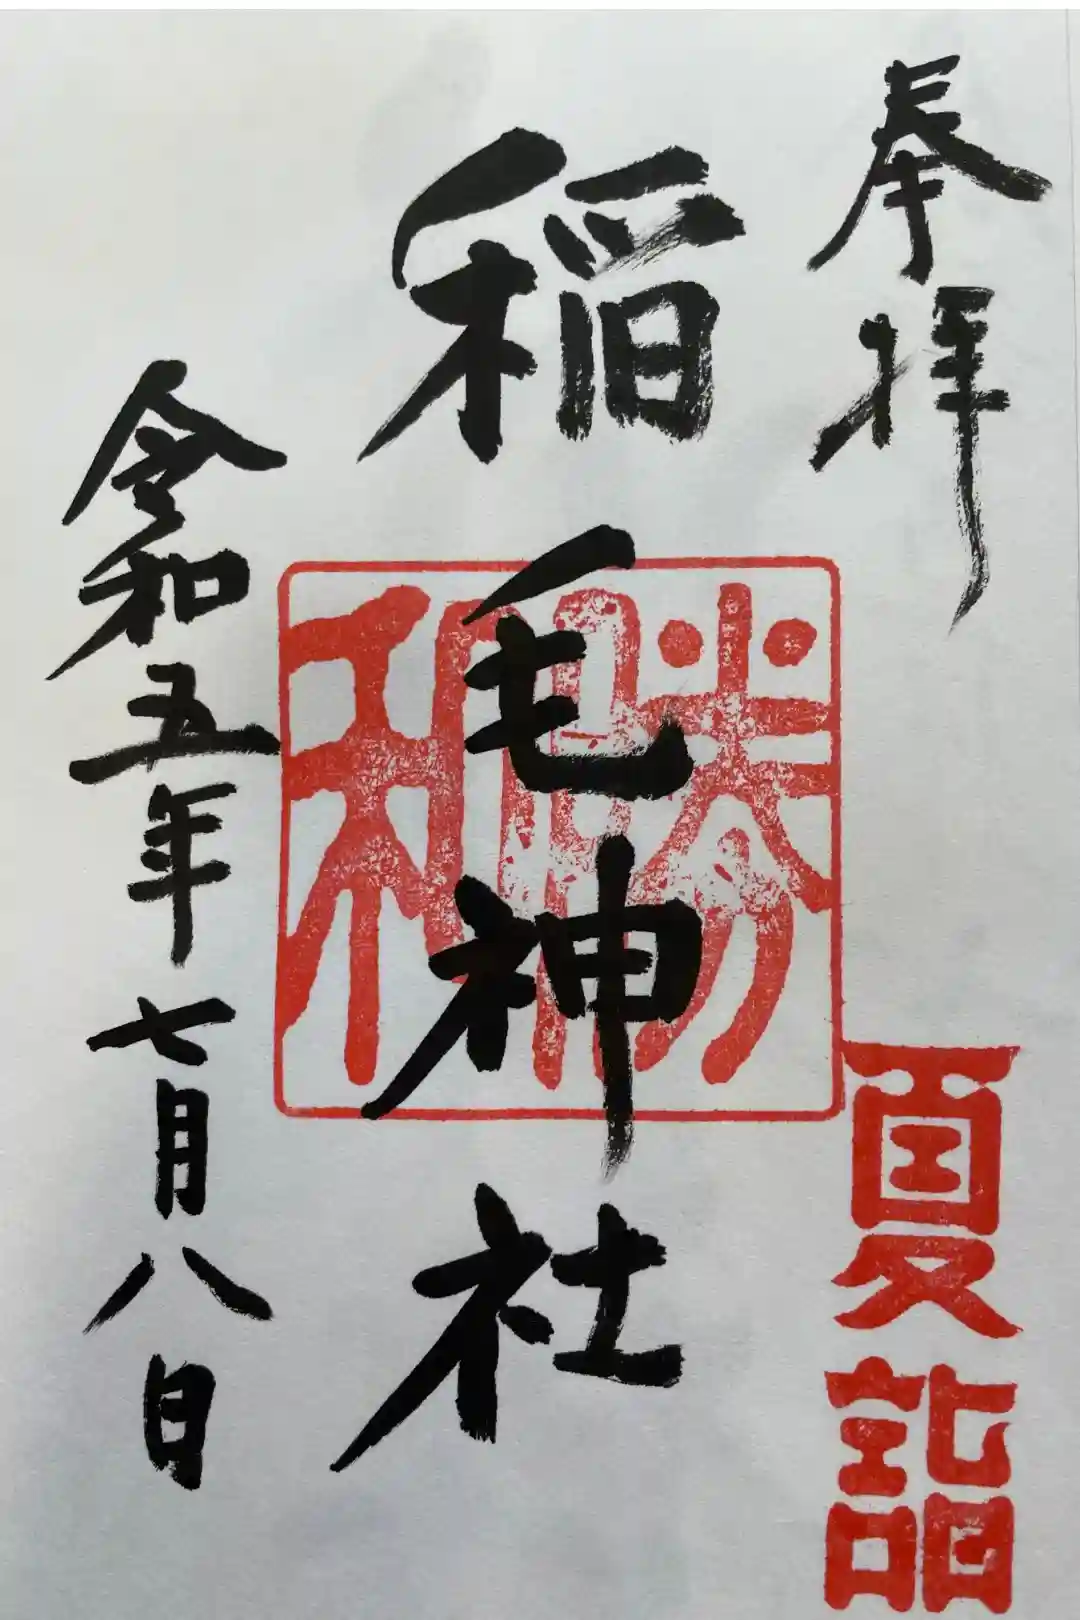 奉拝
夏詣
稲毛神社
勝
令和五年七月八日